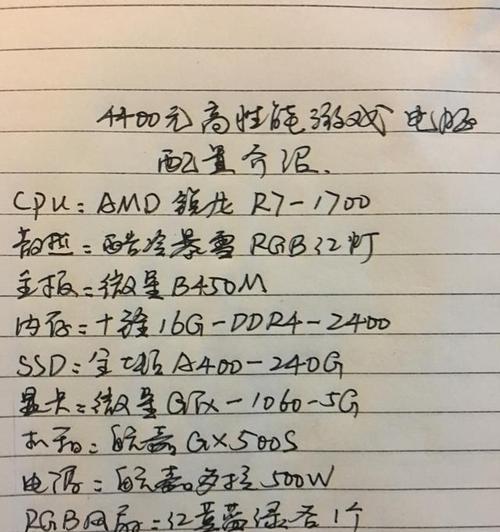 4400元高性能游戏电脑
配置介绍.
CPU:AMD 锐龙 R7-1700
散热:酷冷暴雪RGB红灯
主板:微星B450M
内存:十铨16G-DDR4-2400
SSD:金士顿A400-240G
显卡:微星GTX-1060-5G
机箱:航嘉GX500S
电源:航嘉多核500W
RGB风扇:红黄蓝绿各1个